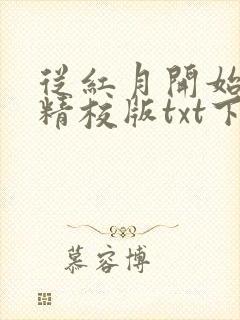 從紅月開始
精校版txt下
慕容博